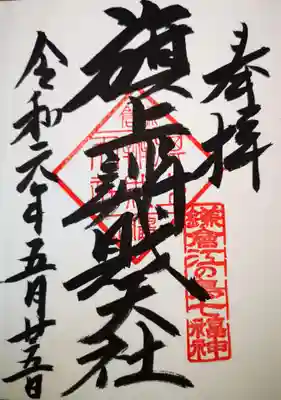 奉拝
鎌倉江の島七福神
旗上辯財天社
令和元年五月廿五日